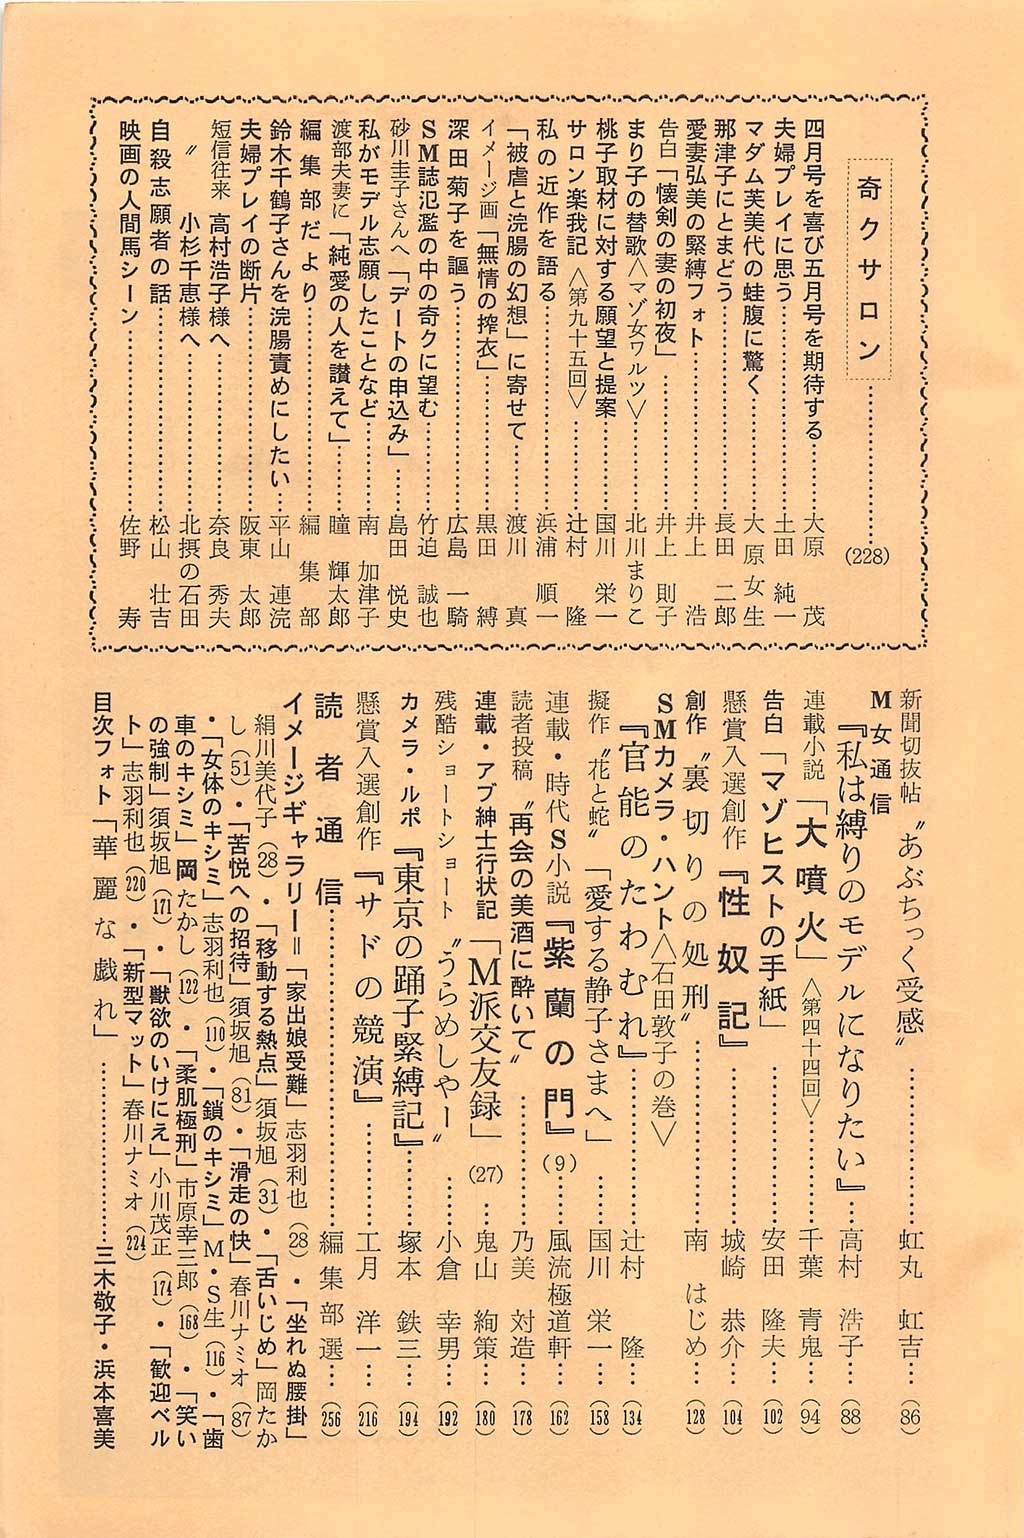 奇クサロン……………(228)
四月号を喜び五月号を期待する……大原　茂
夫婦プレイに思う……土田　純一
マダム芙美代の蛙腹に驚く……大原女生
那津子にとまどう……長田　二郎
愛妻弘美の緊縛フォト……井上　浩
告白「懐剣の妻の初夜」……井上　則子
まり子の替歌〈マゾ女ワルツ〉……北川まりこ
桃子取材に対する願望と提案……国川　栄一
サロン楽我記〈第九十五回〉……辻村　隆
私の近作を語る……浜浦　順一
「被虐と浣腸の幻想」に寄せて……渡川　真
イメージ画「無情の搾衣」……黒田　縛
深田菊子を謳う……広島　一騎
SM誌氾濫の中の奇クに望む……竹迫　誠也
砂川圭子さんへ「デートの申込み」……島田　悦史
私がモデル志願したことなど……南　加津子
渡部夫妻に「純愛の人を讃えて」……瞳　輝太郎
編集部だより……編集部
鈴木千鶴子さんを浣腸責めにしたい…平山　連浣
夫婦プレイの断片……阪東　太郎
短信往来　高村浩子様へ……奈良　秀夫
〃　小杉千恵様へ……北摂の石田
自殺志願者の話……松山　壮吉
映画の人間馬シーン……佐野　寿
新聞切抜帖〝あぶちっく受感〟……虹丸　虹吉…(86)
M女通信『私は縛りのモデルになりたい』…高村　浩子…(88)
連載小説「大噴火」〈第四十四回〉…千葉　青鬼…(94)
告白「マゾヒストの手紙」……安田　隆夫…(102)
懸賞入選創作『性奴記』……城崎　恭介…(104)
創作〝裏切りの処刑〟……南　はじめ…(128)
SMカメラ・ハント〈石田敦子の巻〉
『官能のたわむれ』……辻村　隆…(134)
擬作〝花と蛇〟「愛する静子さまへ」……国川　栄一…(158)
連載・時代S小説『紫蘭の門』(9)…風流極道軒…(162)
読者投稿〝再会の美酒に酔いて〟……乃美　対造…(178)
連載・アブ紳士行状記「M派交友録」(27)…鬼山　絢策…(180)
残酷ショートショート〝うらめしやー〟……小倉　幸男…(192)
カメラ・ルポ『東京の踊子緊縛記』……塚本　鉄三…(194)
懸賞入選創作『サドの競演』……工月　洋一…(216)
読者通信……編集部選…(256)
イメージギャラリー＝「家出娘受難」志羽利也(28)・「坐れぬ腰掛」
絹川美代子(28)・「移動する熱点」須坂旭(31)・「舌いじめ」岡たか
し(51)・「苦悦への招待」須坂旭(81)・「滑走の快」春川ナミオ(87)
・「女体のキシミ」志羽利也(110)・「鎖のキシミ」M・S生(116)・「歯
車のキシミ」岡たかし(122)・「柔肌極刑」市原幸三郎(168)・「笑い
の強制」須坂旭(171)・「獣欲のいけにえ」小川茂正(174)・「歓迎ベル
ト」志羽利也(220)・「新型マット」春川ナミオ(224)
目次フォト「華麗な戯れ」……三木敬子・浜本喜美